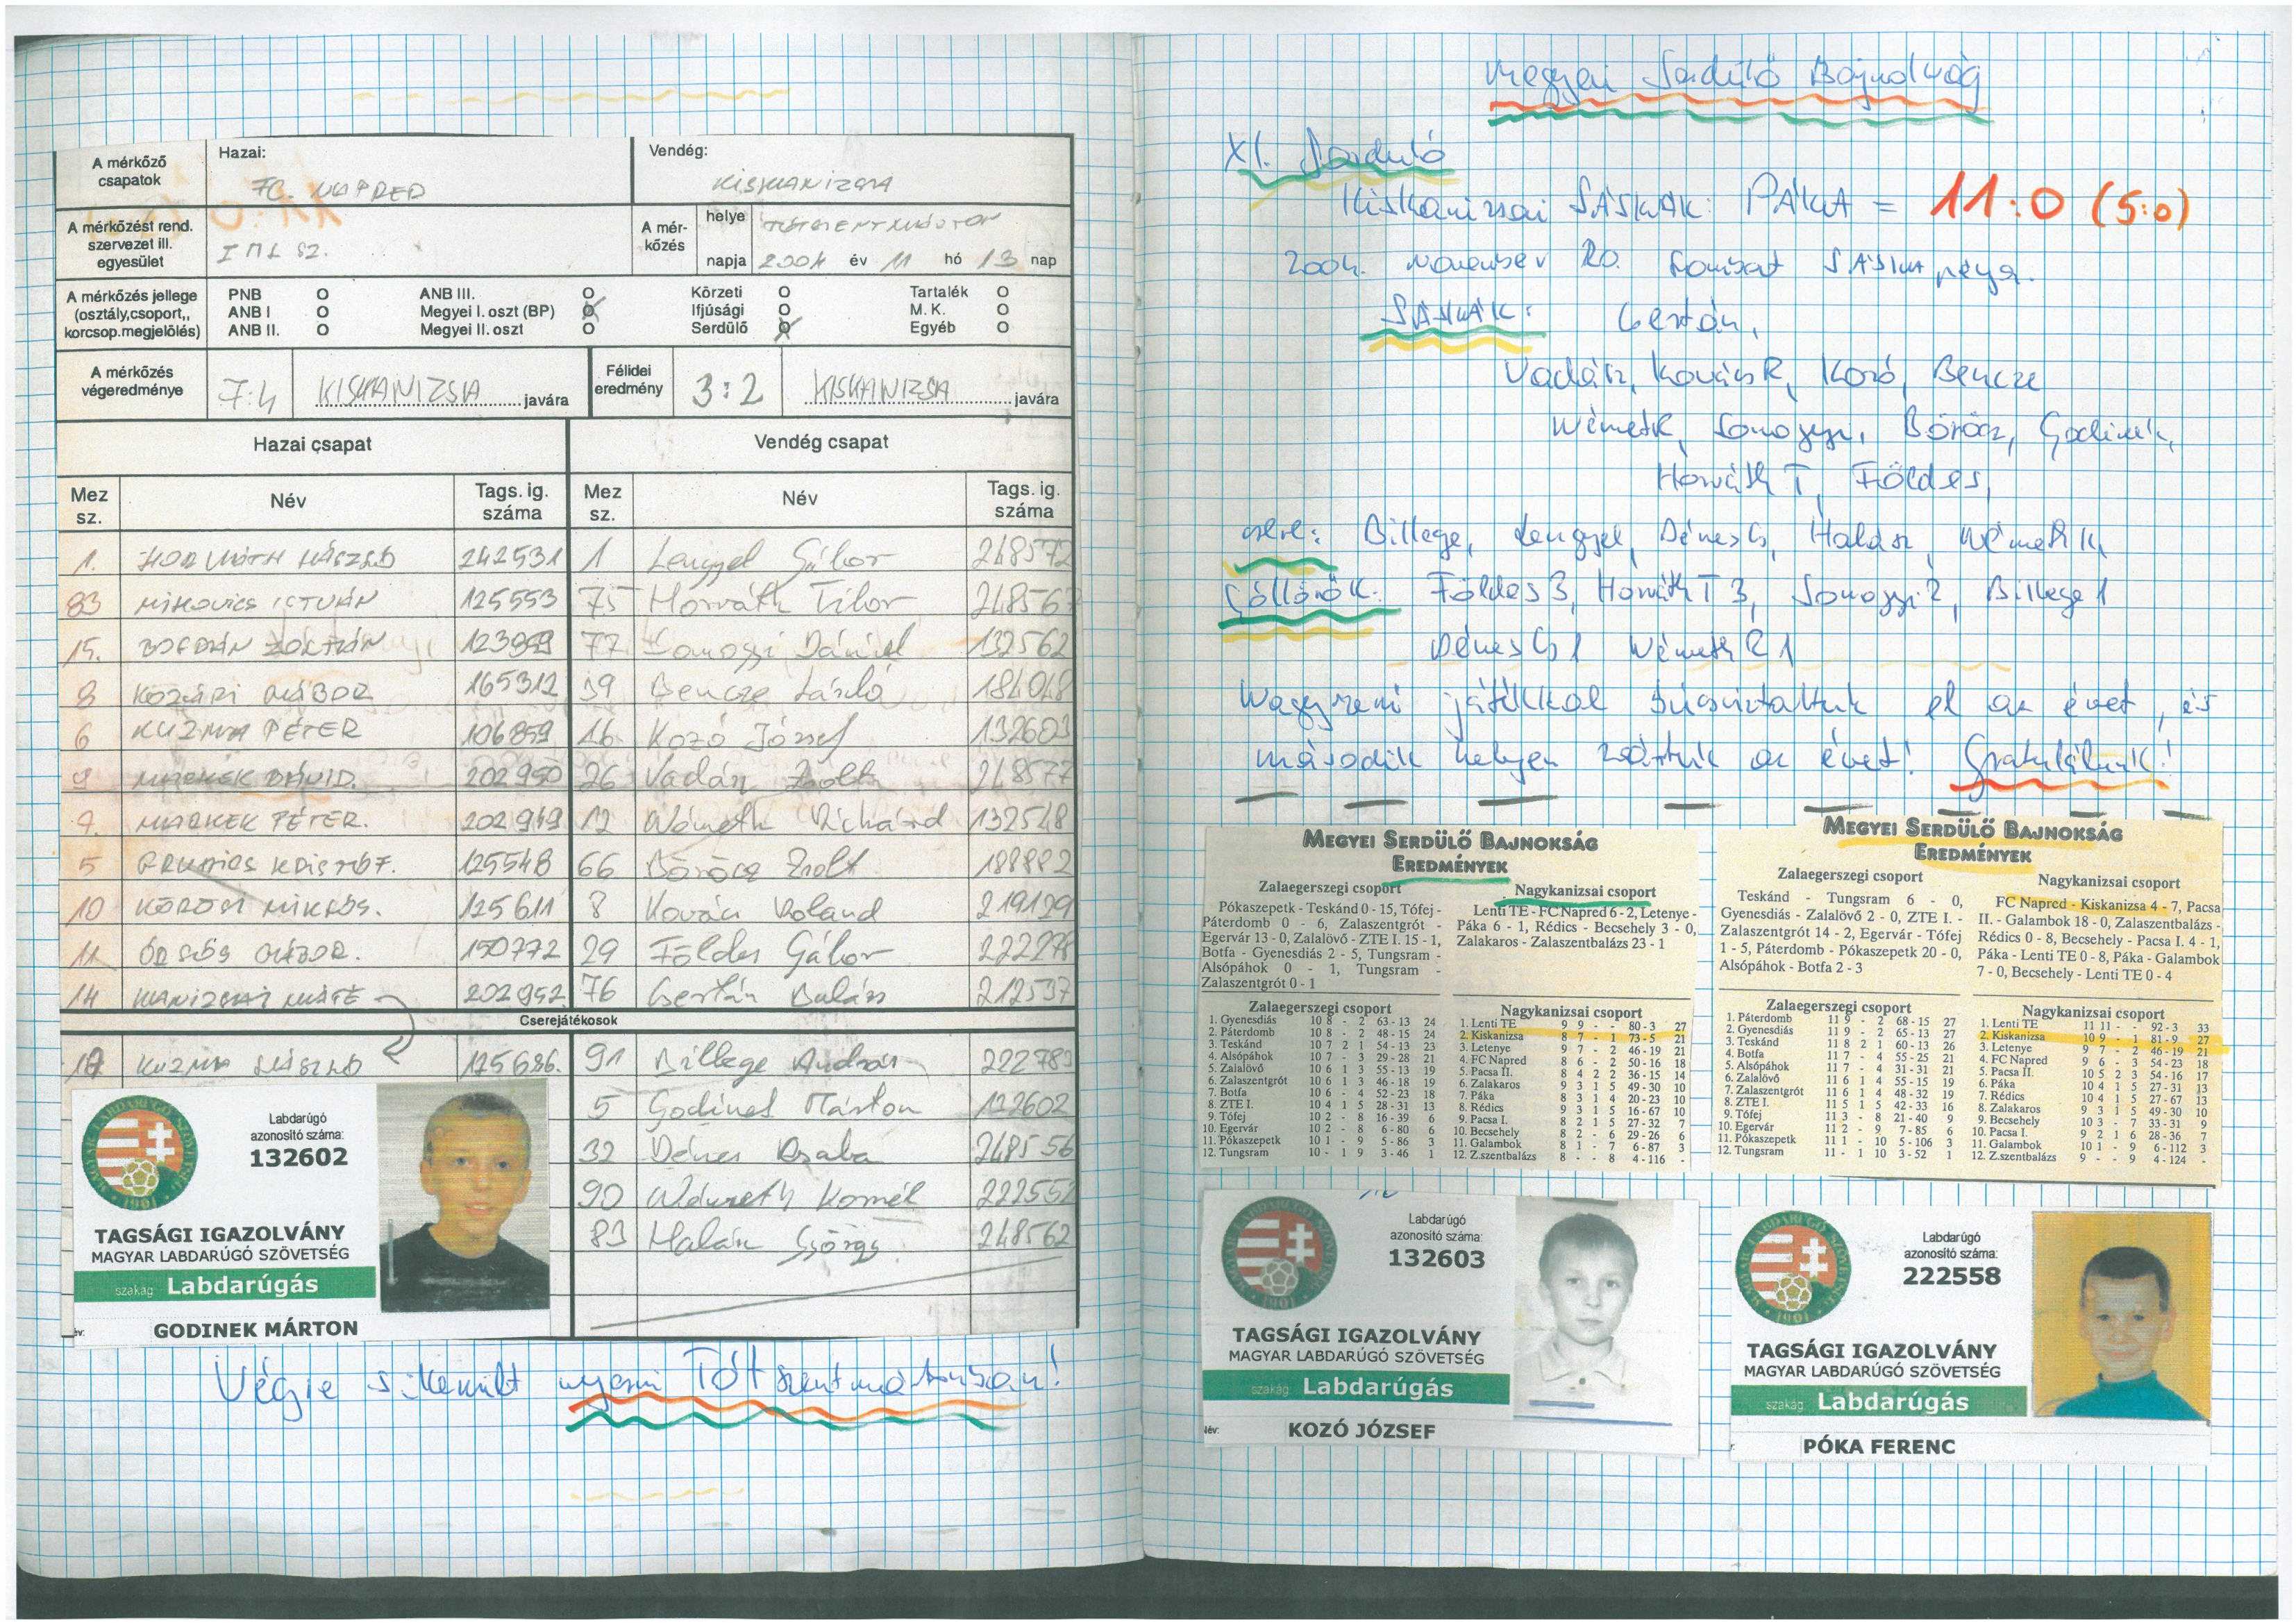 A mérkőző csapatok
Hazai:
FC. NAPRED
Vendég:
KISKANIZSA
A mérkőzést rend. szervezet ill. egyesület
A mérkőzés
helye
napja 2004 év 11 hó 13 nap
A mérkőzés jellege (osztály,csoport,, korcsop.megjelölés)
PNB O ANB III. O Körzeti O Tartalék O
ANB I O Megyei I. oszt (BP) O Ifjúsági O M. K. O
ANB II. O Megyei II. oszt O Serdülő O Egyéb O
A mérkőzés végeredménye 7:4 KISKANIZSA javára
Félidei eredmény 3:2 KISKANIZSA javára
Hazai csapat
Vendég csapat
Mez sz. Név Tags. ig. száma Mez sz. Név Tags. ig. száma
1. HORVÁTH LÁSZLÓ 242531 1 Lengyel Gábor 248572
83 MIHOVICS ISTVÁN 125553 75 Horváth Tibor 24856
15. BOGDÁN ZOLTÁN 77 Somogyi Dániel 132562
8 GÁBOR 165312 39 Bencze László 184048
6 KUZMA PÉTER 106859 16 Kozó József 132603
9 MARKEK DÁVID. 202950 26 Vadász Zsolt 248577
7. MARKEK PÉTER. 202949 12 Németh Richárd 132548
5 KRISTÓF. 125548 66 Böröcz Zsolt 188882
10 KŐRÖSI MIKLÓS. 125611 8 Kovács Roland 219129
11 ÓRSÓS GÁBOR. 150772 29 Földes Gábor 222278
14 KANIZSAI MÁTÉ 202952 76 Gertán Balázs 212537
Cserejátékosok
KUZMA LÁSZLÓ 125686. 91 Billege András 222783
5 Godinek Márton 132602
32 Dénes Csaba 248556
90 Németh Kornél 222552
83 Halász György 248562
Labdarúgó
azonosító száma:
132602
TAGSÁGI IGAZOLVÁNY
MAGYAR LABDARÚGÓ SZÖVETSÉG
szakág Labdarúgás
GODINEK MÁRTON
Végre sikerült nyerni Tótszentmártonban!
Megyei Serdülő Bajnokság
XI. Forduló
Kiskanizsai SÁSKÁK: PÁKA = 11:0 (5:0)
2004. November 20. Szombat SÁSKA pálya.
SÁSKÁK: Gertán,
Vadász, Kovács R, Kozó, Bencze
Németh R, Somogyi, Böröcz, Godinek,
Horváth T, Földes,
csere: Billege, Lengyel, Dénes Cs, Halász, Németh K,
Góllövők: Földes 3, Horváth T 3, Somogyi 2, Billege 1
Dénes Cs 1 Németh R 1
Nagyszerű játékkal búcsúztattuk el az évet, és
második helyen zártuk az évet! Gratulálunk!
MEGYEI SERDÜLŐ BAJNOKSÁG
EREDMÉNYEK
Zalaegerszegi csoport
Pókaszepetk - Teskánd 0 - 15, Tófej -
Páterdomb 0 - 6, Zalaszentgrót -
Egervár 13 - 0, Zalalövő - ZTE I. 15 - 1,
Botfa - Gyenesdiás 2 - 5, Tungsram -
Alsópáhok 0 - 1, Tungsram -
Zalaszentgrót 0 - 1
Nagykanizsai csoport
Lenti TE - FC Napred 6 - 2, Letenye -
Páka 6 - 1, Rédics - Becsehely 3 - 0,
Zalakaros - Zalaszentbalázs 23 - 1
Zalaegerszegi csoport
1. Gyenesdiás 10 8 - 2 63-13 24
2. Páterdomb 10 8 - 2 48-15 24
3. Teskánd 10 7 2 1 54-13 23
4. Alsópáhok 10 7 - 3 29-28 21
5. Zalalövő 10 6 1 3 55-13 19
6. Zalaszentgrót 10 6 1 3 46-18 19
7. Botfa 10 6 - 4 52-23 18
8. ZTE I. 10 4 1 5 28-31 13
9. Tófej 10 2 - 8 16-39 6
10. Egervár 10 2 - 8 6-80 6
11. Pókaszepetk 10 1 - 9 5-86 3
12. Tungsram 10 - 1 9 3-46 1
Nagykanizsai csoport
1. Lenti TE 9 9 - - 80-3 27
2. Kiskanizsa 8 7 - 1 73-5 21
3. Letenye 9 7 - 2 46-19 21
4. FC Napred 8 6 - 2 50-16 18
5. Pacsa II. 8 4 2 2 36-15 14
6. Zalakaros 9 3 1 5 49-30 10
7. Páka 8 3 1 4 20-23 10
8. Rédics 9 3 1 5 16-67 10
9. Pacsa I. 8 2 1 5 27-32 7
10. Becsehely 8 2 - 6 29-26 6
11. Galambok 8 1 - 7 6-87 3
12. Z.szentbalázs 8 - - 8 4-116 -
MEGYEI SERDÜLŐ BAJNOKSÁG
EREDMÉNYEK
Zalaegerszegi csoport
Teskánd - Tungsram 6 - 0,
Gyenesdiás - Zalalövő 2 - 0, ZTE I. -
Zalaszentgrót 14 - 2, Egervár - Tófej
1 - 5, Páterdomb - Pókaszepetk 20 - 0,
Alsópáhok - Botfa 2 - 3
Nagykanizsai csoport
FC Napred - Kiskanizsa 4 - 7, Pacsa
II. - Galambok 18 - 0, Zalaszentbalázs -
Rédics 0 - 8, Becsehely - Pacsa I. 4 - 1,
Páka - Lenti TE 0 - 8, Páka - Galambok
7 - 0, Becsehely - Lenti TE 0 - 4
Zalaegerszegi csoport
1. Páterdomb 11 9 - 2 68-15 27
2. Gyenesdiás 11 9 - 2 65-13 27
3. Teskánd 11 8 2 1 60-13 26
4. Botfa 11 7 - 4 55-25 21
5. Alsópáhok 11 7 - 4 31-31 21
6. Zalalövő 11 6 1 4 55-15 19
7. Zalaszentgrót 11 6 1 4 48-32 19
8. ZTE I. 11 5 1 5 42-33 16
9. Tófej 11 3 - 8 21-40 9
10. Egervár 11 2 - 9 7-85 6
11. Pókaszepetk 11 1 - 10 5-106 3
12. Tungsram 11 - 1 10 3-52 1
Nagykanizsai csoport
1. Lenti TE 11 11 - - 92-3 33
2. Kiskanizsa 10 9 - 1 81-9 27
3. Letenye 9 7 - 2 46-19 21
4. FC Napred 9 6 - 3 54-23 18
5. Pacsa II. 10 5 2 3 54-16 17
6. Páka 10 4 1 5 27-31 13
7. Rédics 10 4 1 5 27-67 13
8. Zalakaros 9 3 1 5 49-30 10
9. Becsehely 10 3 - 7 33-31 9
10. Pacsa I. 9 2 1 6 28-36 7
11. Galambok 10 1 - 9 6-112 3
12. Z.szentbalázs 9 - - 9 4-124 -
Labdarúgó
azonosító száma:
132603
TAGSÁGI IGAZOLVÁNY
MAGYAR LABDARÚGÓ SZÖVETSÉG
szakág Labdarúgás
Név: KOZÓ JÓZSEF
Labdarúgó
azonosító száma:
222558
TAGSÁGI IGAZOLVÁNY
MAGYAR LABDARÚGÓ SZÖVETSÉG
szakág Labdarúgás
PÓKA FERENC